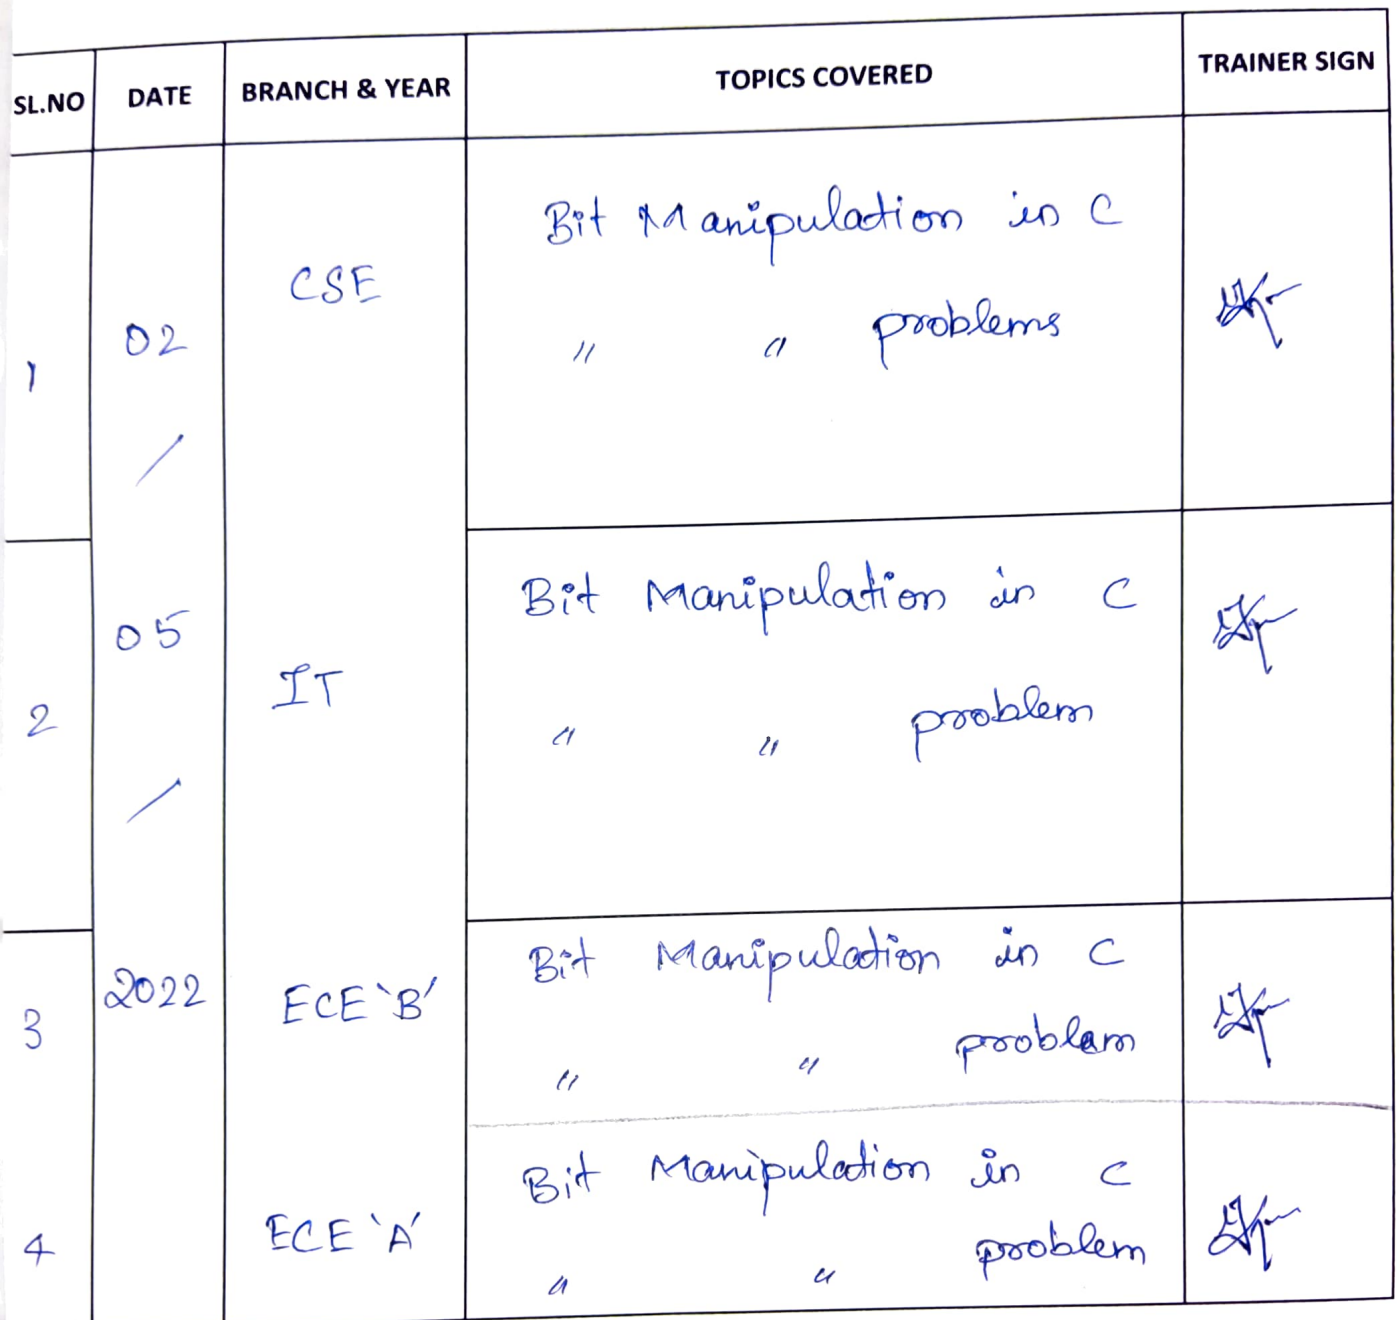 SL.NO DATE BRANCH & YEAR TOPICS COVERED TRAINER SIGN
1 02 CSE Bit Manipulation in C
" " problems
/
2 05 IT Bit Manipulation in C
" " problem
/
3 2022 ECE 'B' Bit Manipulation in C
" " problem
4 ECE 'A' Bit Manipulation in C
" " problem